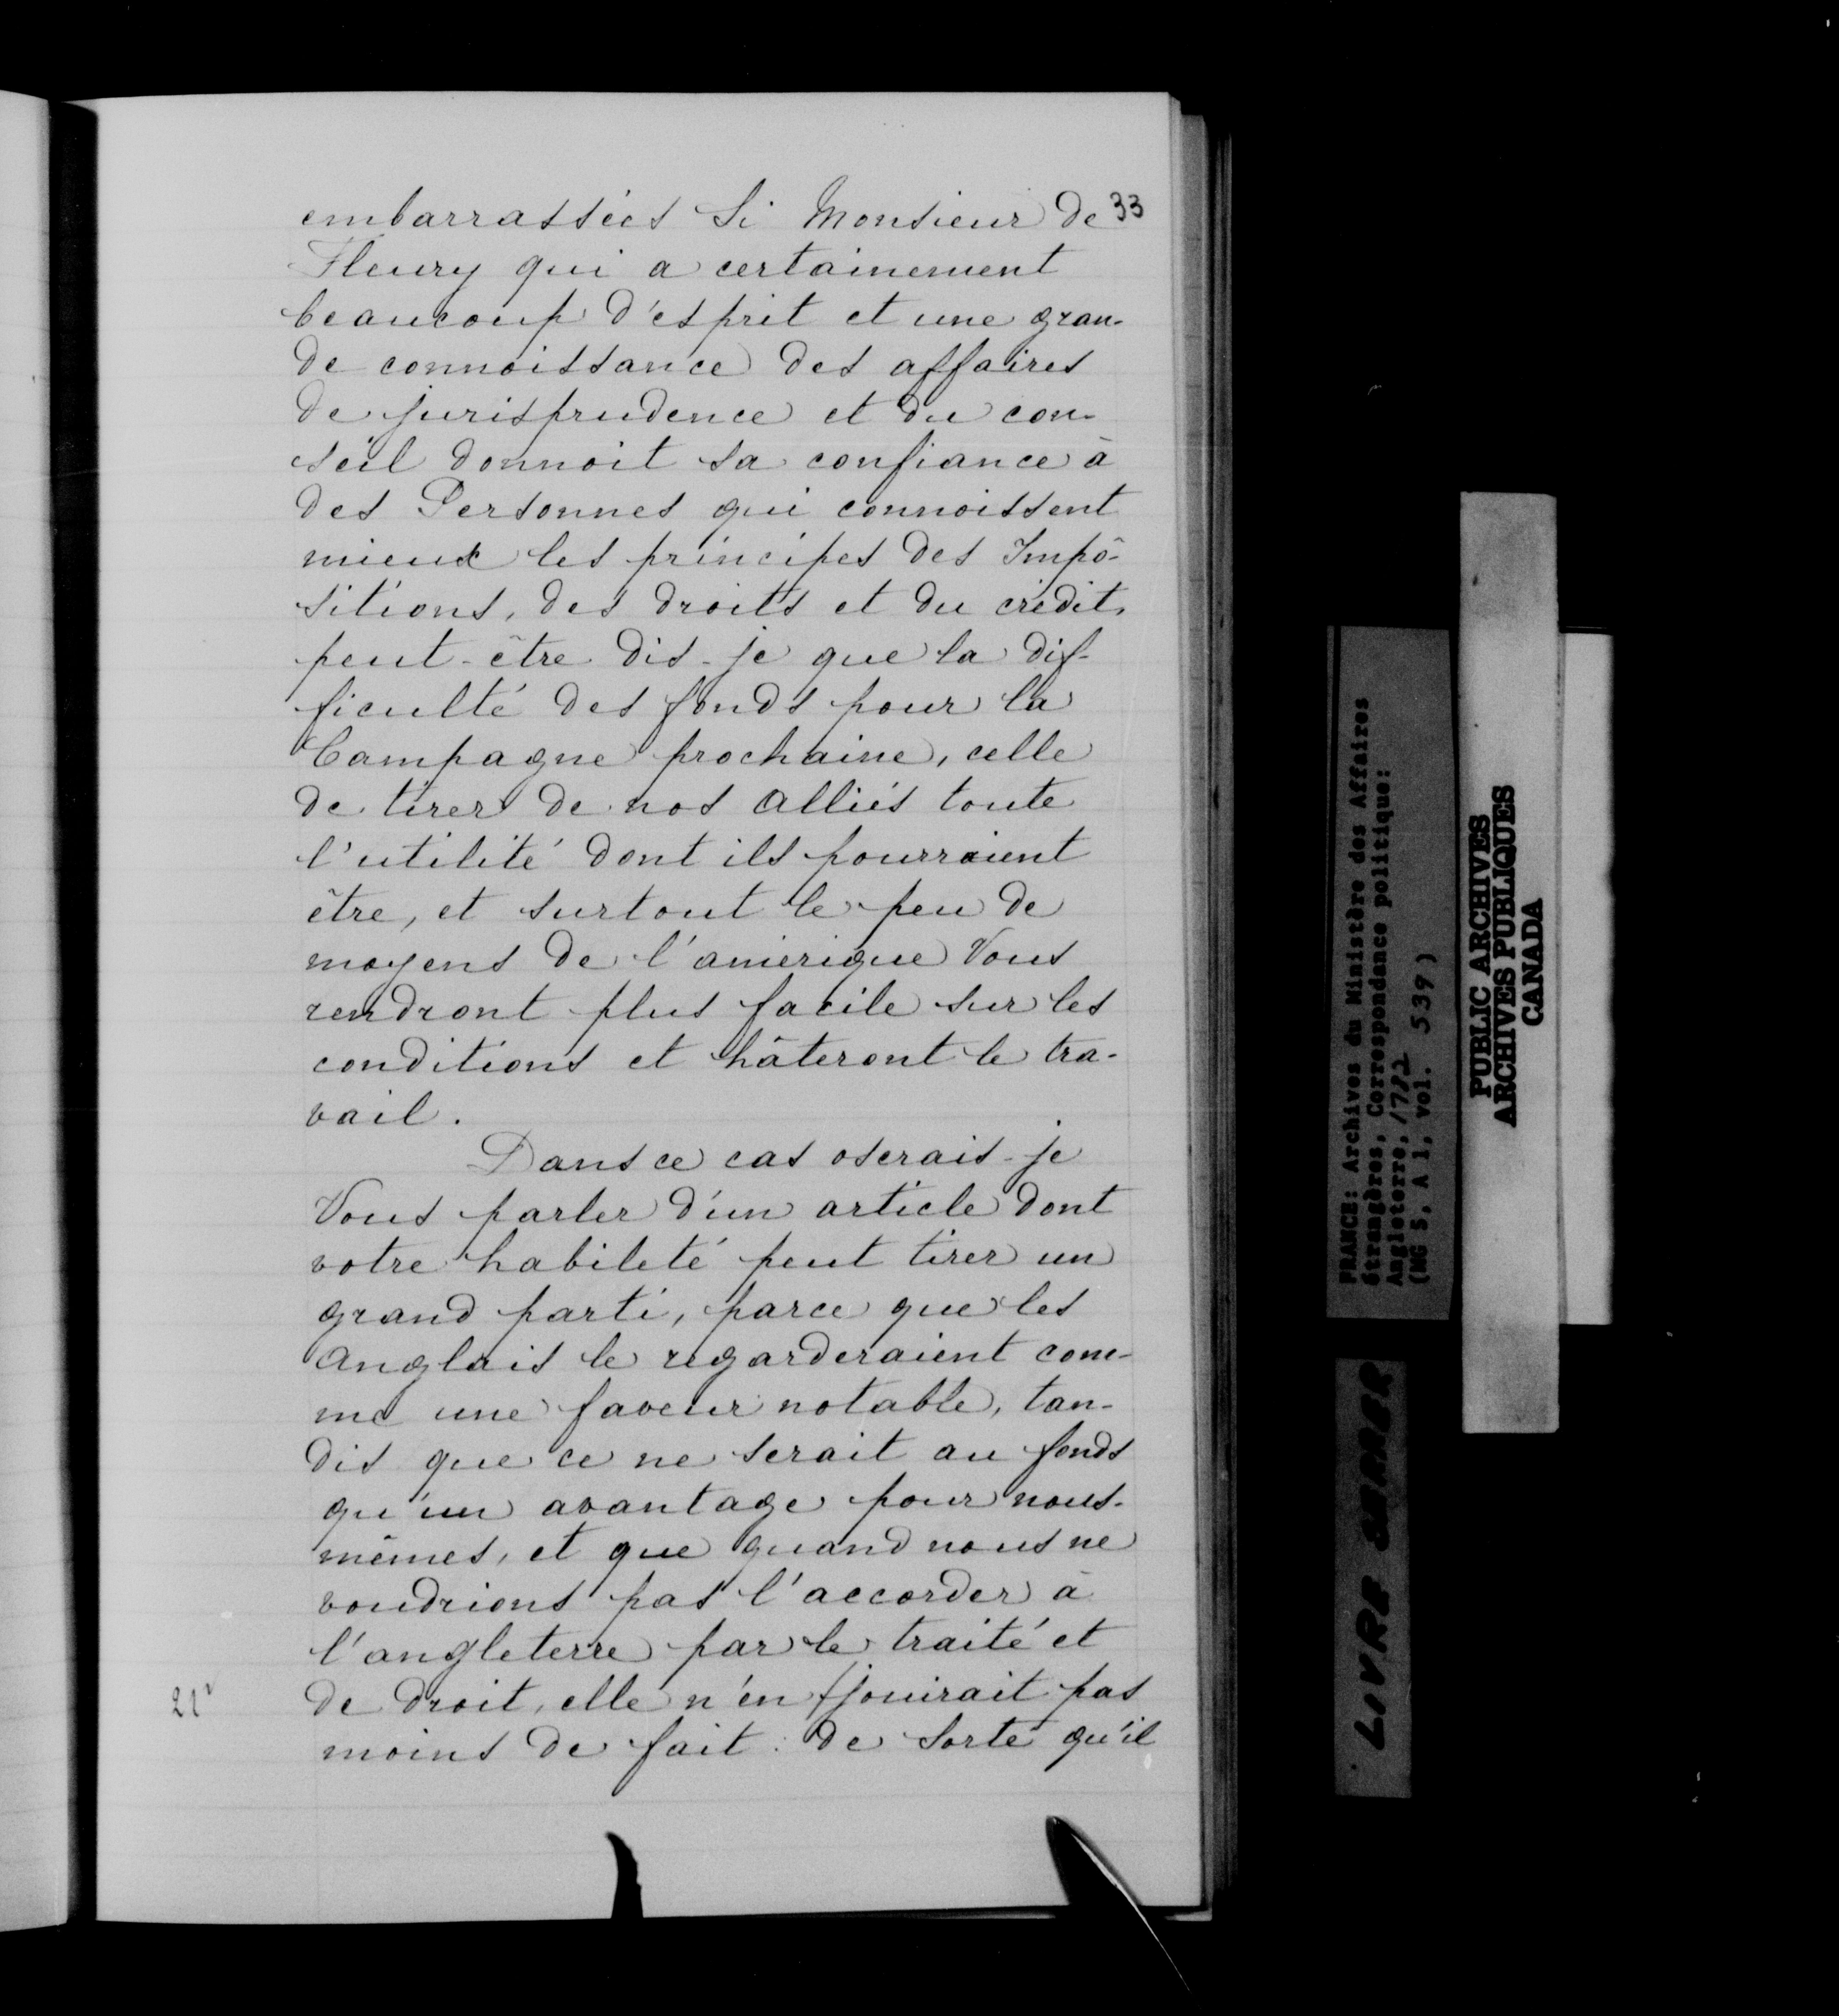 33
embarrassées Si Monsieur de
Fleury qui a certainement
beaucoup d'esprit et une gran-
de connoissance des affaires
de jurisprudence et du con-
seil donnoit sa confiance à
des Personnes qui connoissent
mieux les principes des Impô-
sitions, des droits et du crédit,
peut-être dis-je que la dif-
ficulté des fonds pour la
Campagne prochaine, celle
de tirer de nos Alliés toute
l'utilité dont ils pourraient
être, et surtout le peu de
moyens de l'amérique Vous
rendront plus facile sur les
conditions et hâteront le tra-
vail.
Dans ce cas oserais-je
Vous parler d'un article dont
votre habileté peut tirer un
grand parti, parce que les
Anglais le regarderaient com-
me une faveur notable, tan-
dis que ce ne serait au fonds
qu'un avantage pour nous-
mêmes, et que quand nous ne
voudrions pas l'accorder à
l'angleterre par le traité et
21v
de droit, elle n'en /jouirait pas
moins de fait: de sorte qu'il
FRANCE: Archives du Ministère des Affaires
étrangères, Correspondance politique:
Angleterre, 1782
(MG 5, A 1, vol. 539)
PUBLIC ARCHIVES
ARCHIVES PUBLIQUES
CANADA
LIVRE